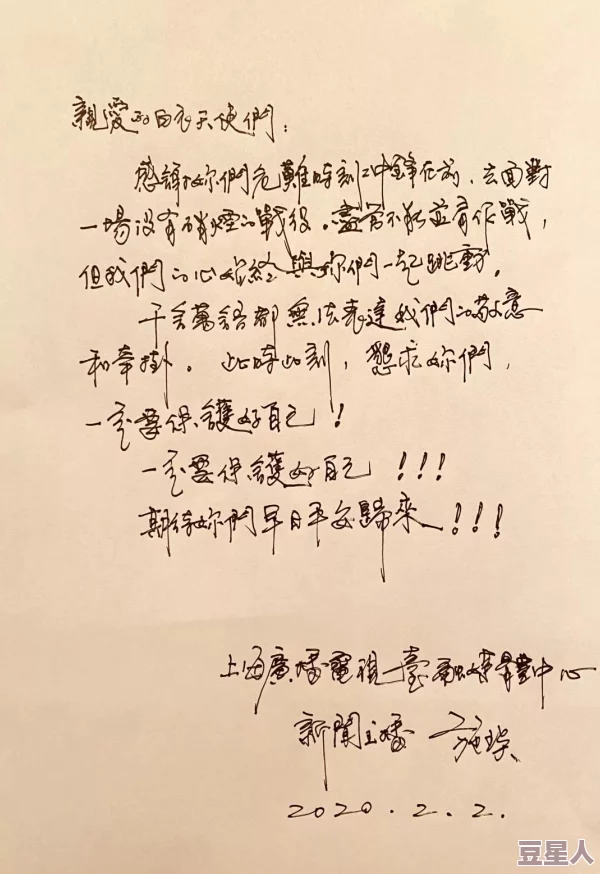 親愛的白衣天使們：
感謝妳們危難時刻沖鋒在前，去面對
一場没有硝煙的戰役。盡管不能並肩作戰，
但我們的心始終與妳們一起跳動。
千言萬語都無法表達我們的敬意
和牽掛。此時此刻，懇求妳們，
一定要保護好自己！
一定要保護好自己！！！
期待妳們早日平安歸來！！！
上海廣播電視臺融媒體中心
新聞主播 施琰
2020.2.2.
豆星人